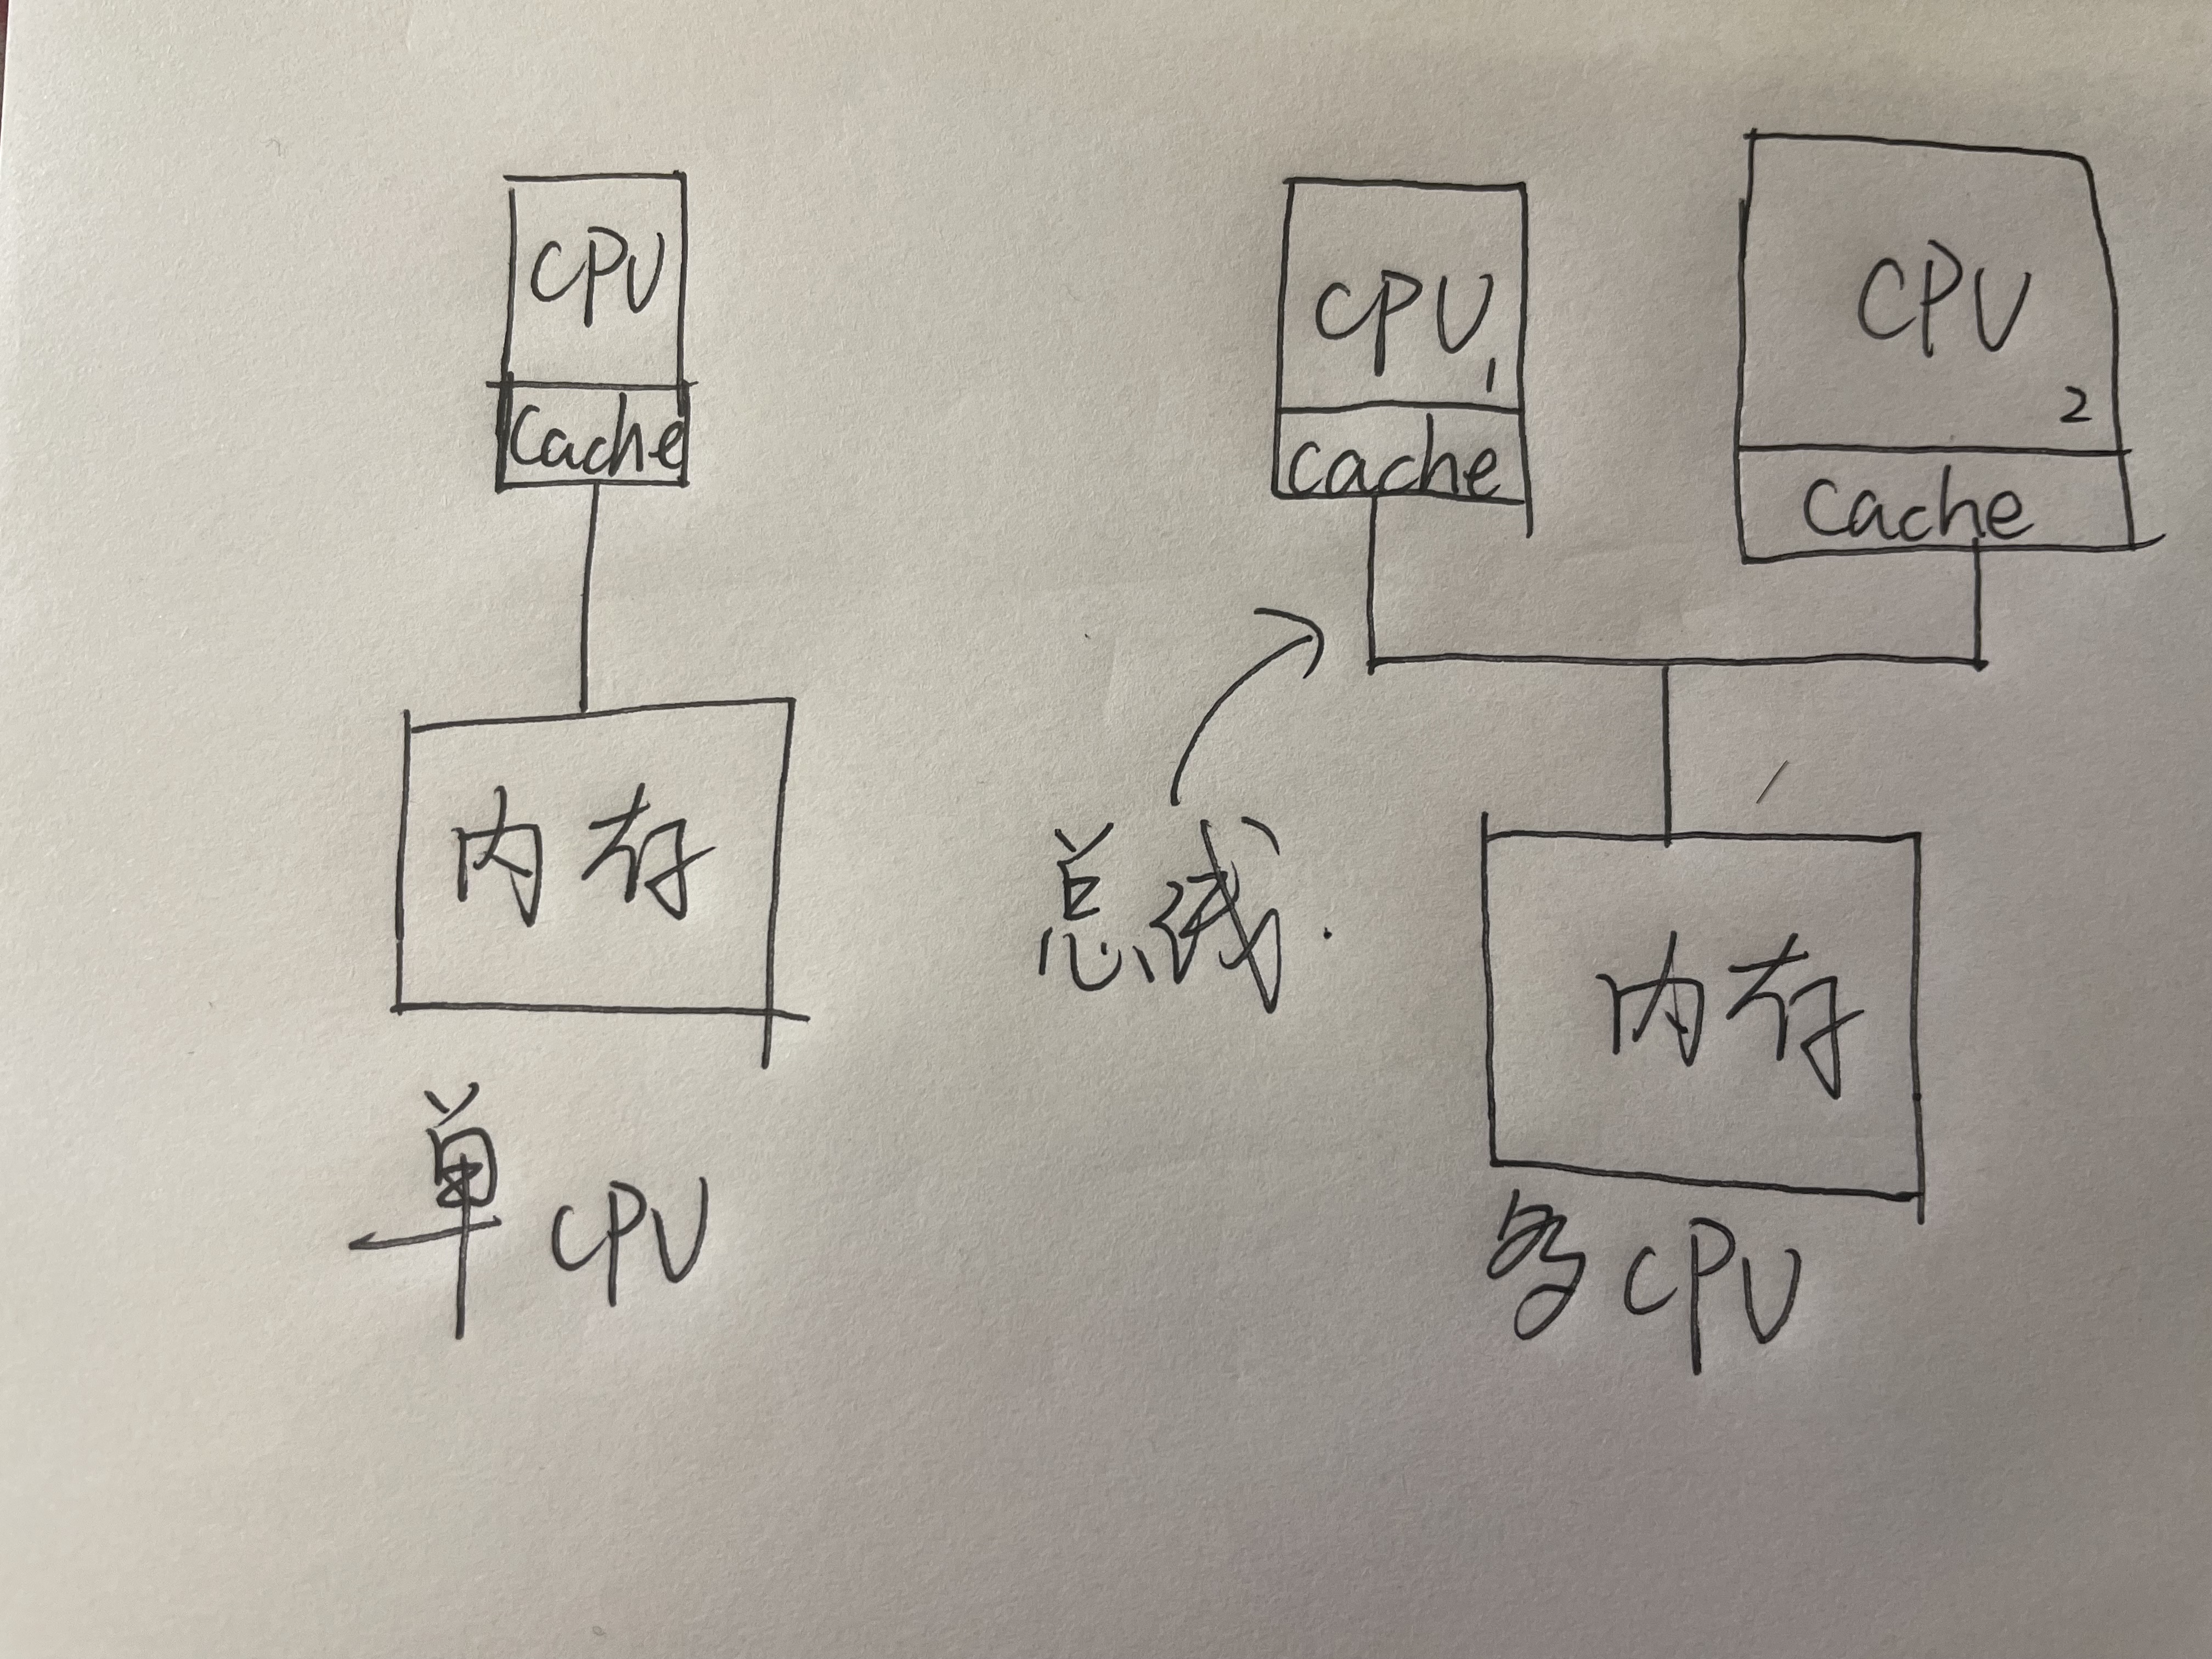 CPU
Cache
内存
单CPU
CPU1
cache
CPU2
Cache
总线.
内存
多CPU